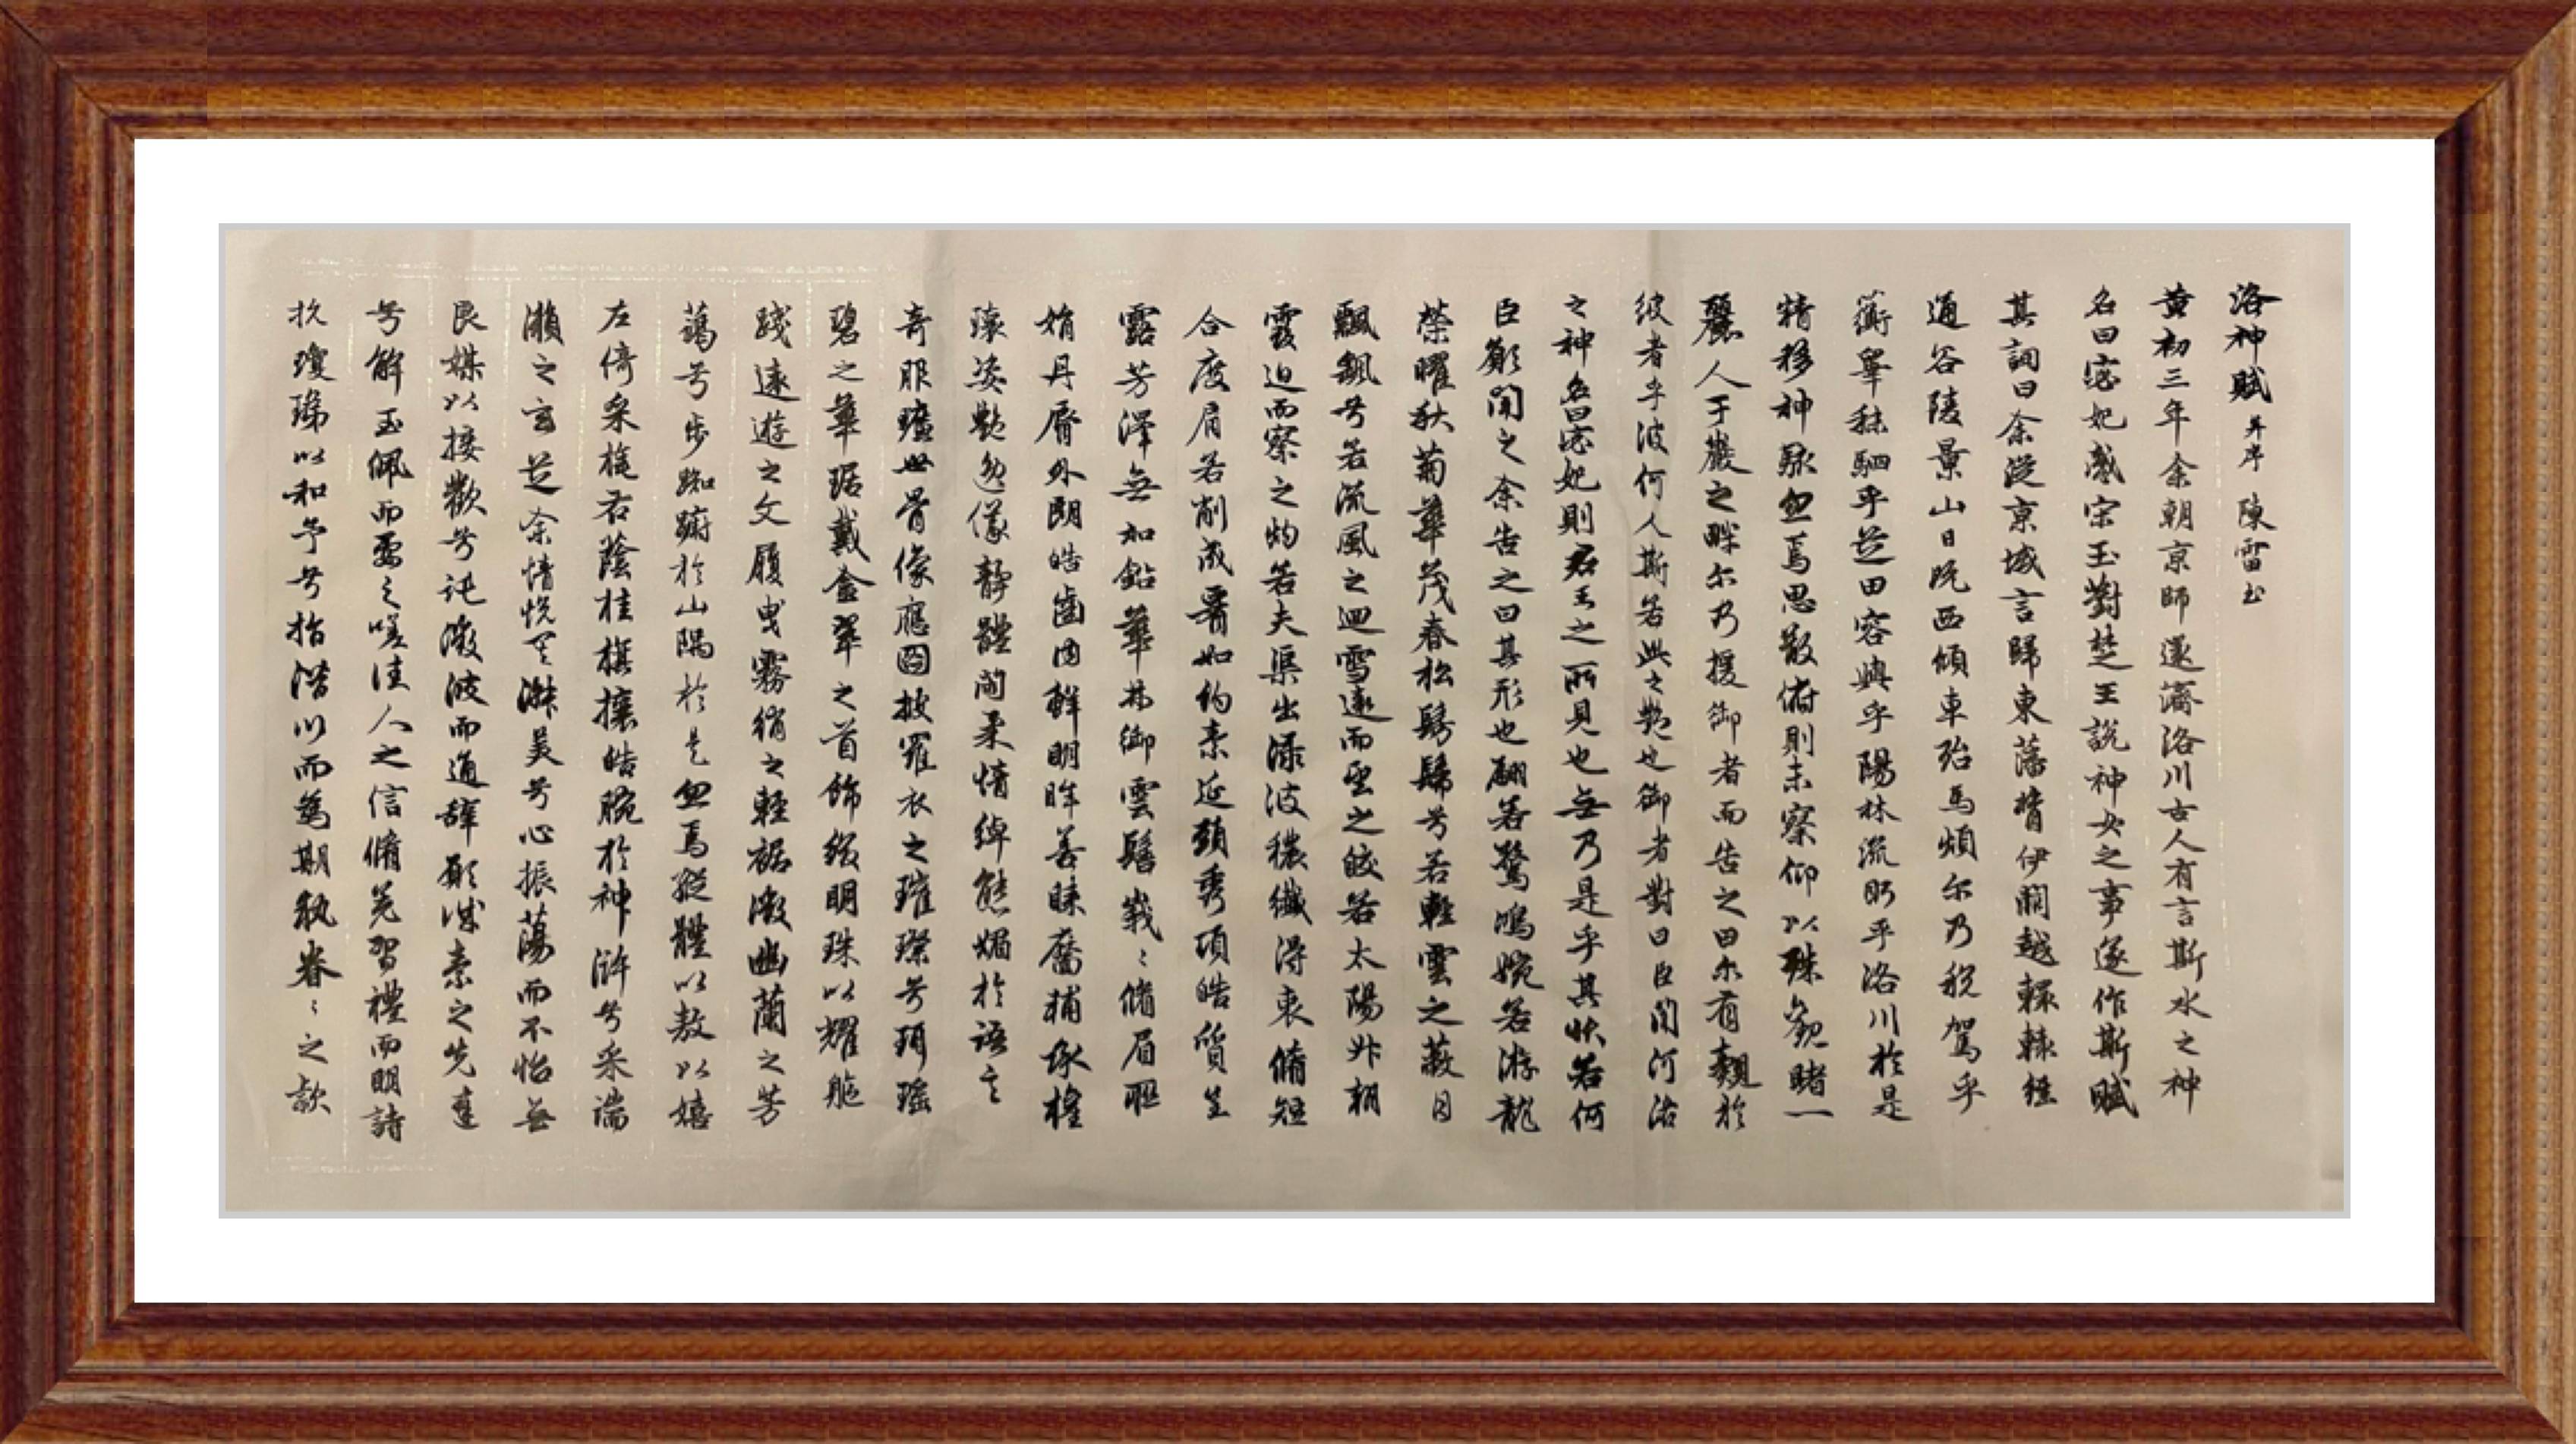 洛神賦并序 陳雷書
黃初三年余朝京師還濟洛川古人有言斯水之神
名曰宓妃感宋玉對楚王說神女之事遂作斯賦
其詞曰余從京域言歸東藩背伊闕越轘轅經
通谷陵景山日既西傾車殆馬煩尔乃稅駕乎
蘅皋秣駟乎芝田容與乎陽林流眄乎洛川於是
精移神駭忽焉思散俯則未察仰以殊觀睹一
麗人于巖之畔尔乃援御者而告之曰尔有覿於
彼者乎彼何人斯若此之艷也御者對曰臣聞河洛
之神名曰宓妃則君王之所見也無乃是乎其狀若何
臣願聞之余告之曰其形也翩若驚鴻婉若游龍
榮曜秋菊華茂春松髣髴兮若輕雲之蔽月
飄飖兮若流風之迴雪遠而望之皎若太陽升朝
霞迫而察之灼若夫渠出淥波穠纖得衷脩短
合度肩若削成腰如約素延頸秀項皓質呈
露芳澤無加鉛華弗御雲髻峩〻脩眉聯
娟丹脣外朗皓齒內鮮明眸善睞靨輔承權
瓌姿艷逸儀靜體閑柔情綽態媚於語言
奇服曠世骨像應圖披羅衣之璀璨兮珥瑤
碧之華琚戴金翠之首飾綴明珠以耀軀
踐遠遊之文履曳霧綃之輕裾微幽蘭之芳
藹兮步踟躕於山隅於是忽焉縱體以敖以嬉
左倚采旄右蔭桂旗攘皓腕於神滸兮采湍
瀨之玄芝余情悅其淑美兮心振蕩而不怡無
良媒以接歡兮託微波而通辭願誠素之先達
兮解玉佩而要之嗟佳人之信脩羌習禮而明詩
抗瓊珶以和予兮指潛川而為期執眷〻之款